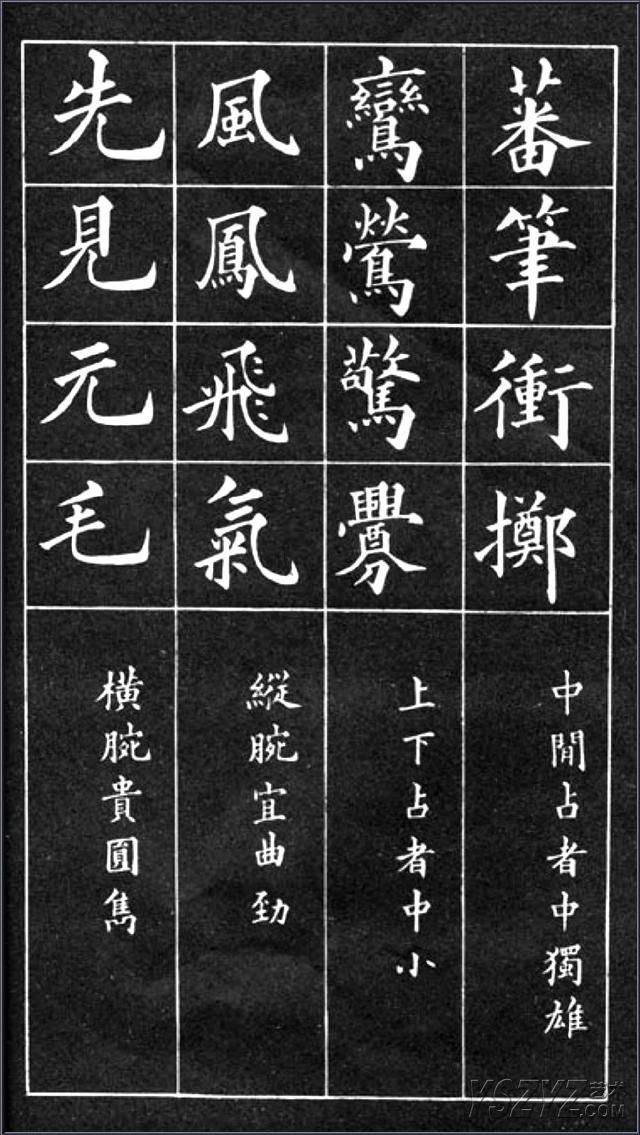 蕃筆衝擲
中閒占者中獨雄
鸞鶯驚釁
上下占者中小
風鳳飛氣
縱腕宜曲勁
先見元毛
橫腕貴圓雋
YSZYZ艺术
.COM